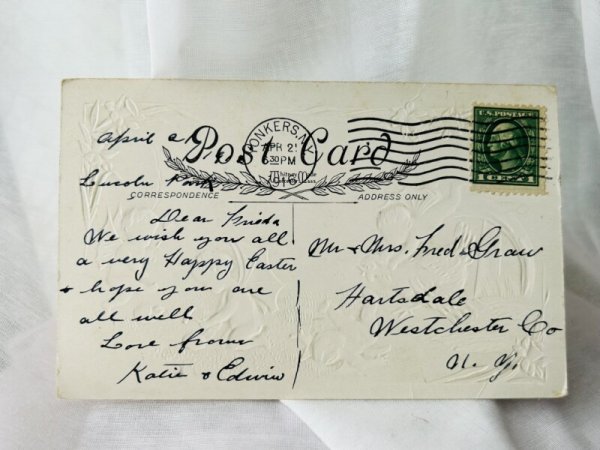 April 2
Post Card
YONKERS, N.Y.
APR 21
30 PM
1916
U.S. POSTAGE
Lincoln Park
CORRESPONDENCE
ADDRESS ONLY
Dear Frieda
We wish you all
a very Happy Easter
+ hope you are
all well
Love from
Katie & Edwin
Mr + Mrs. Fred Graw
Hartsdale
Westchester Co
N. Y.